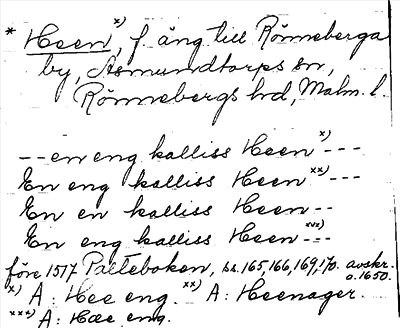 * Heen x), f. äng till Rönneberga
by, Asmundtorps sn,
Rönnebergs hd, Malm. l.
-- en eng kalliss Heen x) ---
En eng kalliss Heen xx) ---
En en kalliss Heen --
En eng kalliss Heen xxx) --
före 1517 Palteboken, ss. 165, 166, 169, 170. avskr.
o. 1650.
x) A: Hee eng. xx) A: Heenager.
xxx) A: Hæe eng.